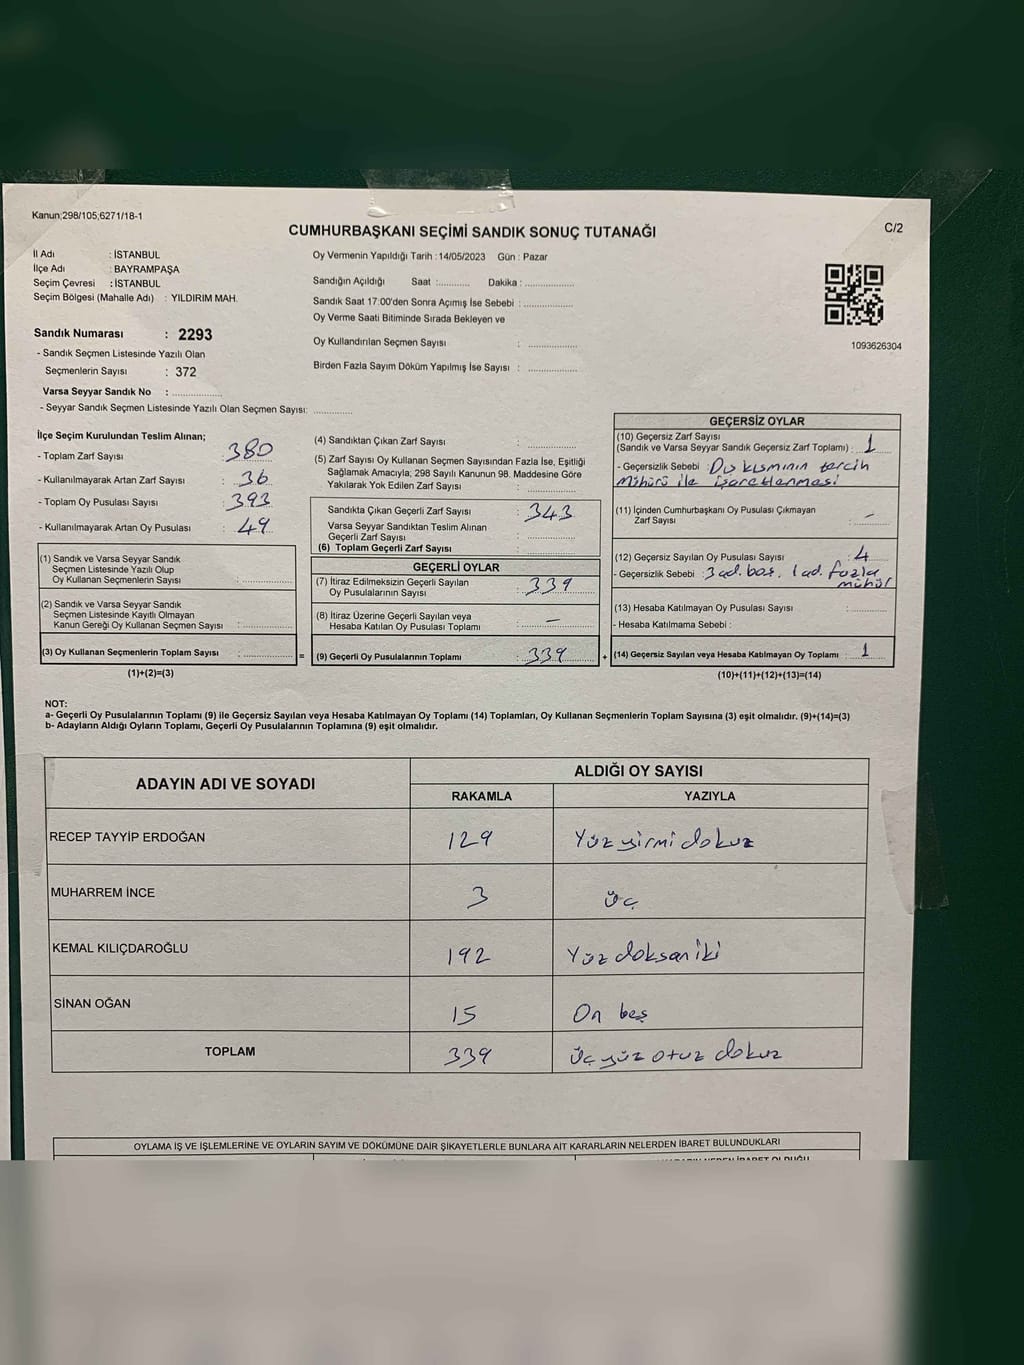 Kanun;298/105;6271/18-1
C/2
CUMHURBAŞKANI SEÇİMİ SANDIK SONUÇ TUTANAĞI
İl Adı : İSTANBUL
İlçe Adı : BAYRAMPAŞA
Seçim Çevresi : İSTANBUL
Seçim Bölgesi (Mahalle Adı) : YILDIRIM MAH.
Sandık Numarası : 2293
- Sandık Seçmen Listesinde Yazılı Olan
Seçmenlerin Sayısı : 372
Varsa Seyyar Sandık No : ..............
- Seyyar Sandık Seçmen Listesinde Yazılı Olan Seçmen Sayısı: ............
Oy Vermenin Yapıldığı Tarih : 14/05/2023 Gün : Pazar
Sandığın Açıldığı Saat :........... Dakika : ................
Sandık Saat 17:00'den Sonra Açımış İse Sebebi : ................
Oy Verme Saati Bitiminde Sırada Bekleyen ve
Oy Kullandırılan Seçmen Sayısı : ................
Birden Fazla Sayım Döküm Yapılmış İse Sayısı : ................
1093626304
İlçe Seçim Kurulundan Teslim Alınan;
- Toplam Zarf Sayısı : 380
- Kullanılmayarak Artan Zarf Sayısı : 36
- Toplam Oy Pusulası Sayısı : 393
- Kullanılmayarak Artan Oy Pusulası : 49
(1) Sandık ve Varsa Seyyar Sandık
Seçmen Listesinde Yazılı Olup
Oy Kullanan Seçmenlerin Sayısı : ................
(2) Sandık ve Varsa Seyyar Sandık
Seçmen Listesinde Kayıtlı Olmayan
Kanun Gereği Oy Kullanan Seçmen Sayısı : ................
(3) Oy Kullanan Seçmenlerin Toplam Sayısı : ................ =
(1)+(2)=(3)
(4) Sandıktan Çıkan Zarf Sayısı : ................
(5) Zarf Sayısı Oy Kullanan Seçmen Sayısından Fazla İse, Eşitliği
Sağlamak Amacıyla; 298 Sayılı Kanunun 98. Maddesine Göre
Yakılarak Yok Edilen Zarf Sayısı : ................
Sandıkta Çıkan Geçerli Zarf Sayısı : 343
Varsa Seyyar Sandıktan Teslim Alınan
Geçerli Zarf Sayısı : ................
(6) Toplam Geçerli Zarf Sayısı : ................
GEÇERLİ OYLAR
(7) İtiraz Edilmeksizin Geçerli Sayılan
Oy Pusulalarının Sayısı : 339
(8) İtiraz Üzerine Geçerli Sayılan veya
Hesaba Katılan Oy Pusulası Toplamı : —
(9) Geçerli Oy Pusulalarının Toplamı : 339 +
GEÇERSİZ OYLAR
(10) Geçersiz Zarf Sayısı
(Sandık ve Varsa Seyyar Sandık Geçersiz Zarf Toplamı) : 1
- Geçersizlik Sebebi : Dış kısmının tercih
Mührü ile işaretlenmesi
(11) İçinden Cumhurbaşkanı Oy Pusulası Çıkmayan
Zarf Sayısı : -
(12) Geçersiz Sayılan Oy Pusulası Sayısı : 4
- Geçersizlik Sebebi : 3 ad. boş, 1 ad. fazla
mühür
(13) Hesaba Katılmayan Oy Pusulası Sayısı : ............
- Hesaba Katılmama Sebebi :
(14) Geçersiz Sayılan veya Hesaba Katılmayan Oy Toplamı : 1
(10)+(11)+(12)+(13)=(14)
NOT:
a- Geçerli Oy Pusulalarının Toplamı (9) ile Geçersiz Sayılan veya Hesaba Katılmayan Oy Toplamı (14) Toplamları, Oy Kullanan Seçmenlerin Toplam Sayısına (3) eşit olmalıdır. (9)+(14)=(3)
b- Adayların Aldığı Oyların Toplamı, Geçerli Oy Pusulalarının Toplamına (9) eşit olmalıdır.
ADAYIN ADI VE SOYADI
ALDIĞI OY SAYISI
RAKAMLA YAZIYLA
RECEP TAYYİP ERDOĞAN 129 Yüz yirmi dokuz
MUHARREM İNCE 3 üç
KEMAL KILIÇDAROĞLU 192 Yüz doksan iki
SİNAN OĞAN 15 On beş
TOPLAM 339 üç yüz otuz dokuz
OYLAMA İŞ VE İŞLEMLERİNE VE OYLARIN SAYIM VE DÖKÜMÜNE DAİR ŞİKAYETLERLE BUNLARA AİT KARARLARIN NELERDEN İBARET BULUNDUKLARI